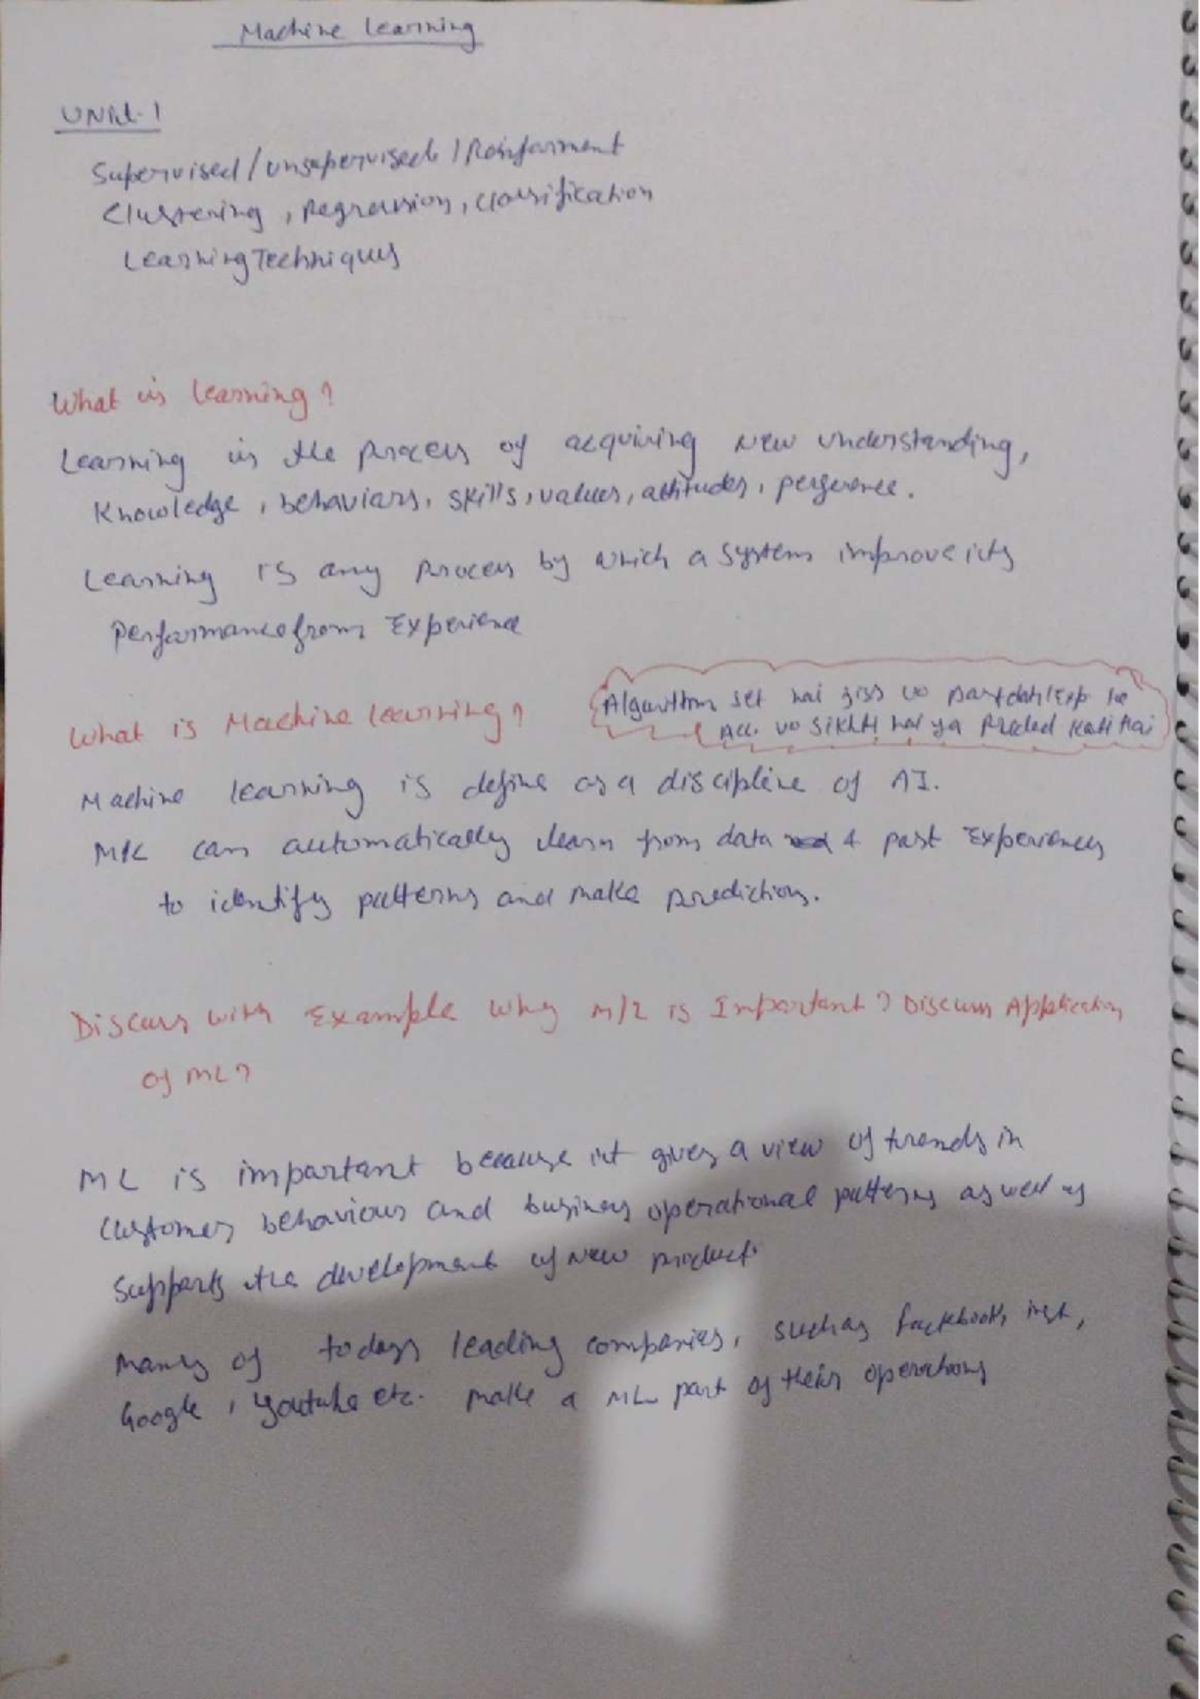 Machine Learning
UNIT-1
Supervised/Unsupervised/Reinforment
Clustering, Regression, Classification
Learning Techniques
What is learning?
Learning is the process of acquiring New understanding,
Knowledge, behaviars, skills, values, attitudes,
Learning is any process by which a system improve its
Performance from Experience
What is Machine learning?
Algorithm set hai jiss vo Past data/Exp ke
Acc. vo sikhti hai ya Preded kati hai
Machine learning is define as a discipline of AI.
M/L can automatically learn from data & past Experiences
to identify patterns and make predictions.
Discuss with Example Why M/L is Important? Discuss Application
of ML?
ML is important because it gives a view of trends in
Customer behaviour and business operational patterns as well as
Supports the development of New product.
Many of todays leading companies, such as facebook, inst,
Google, Youtube etc. make a ML part of their operations